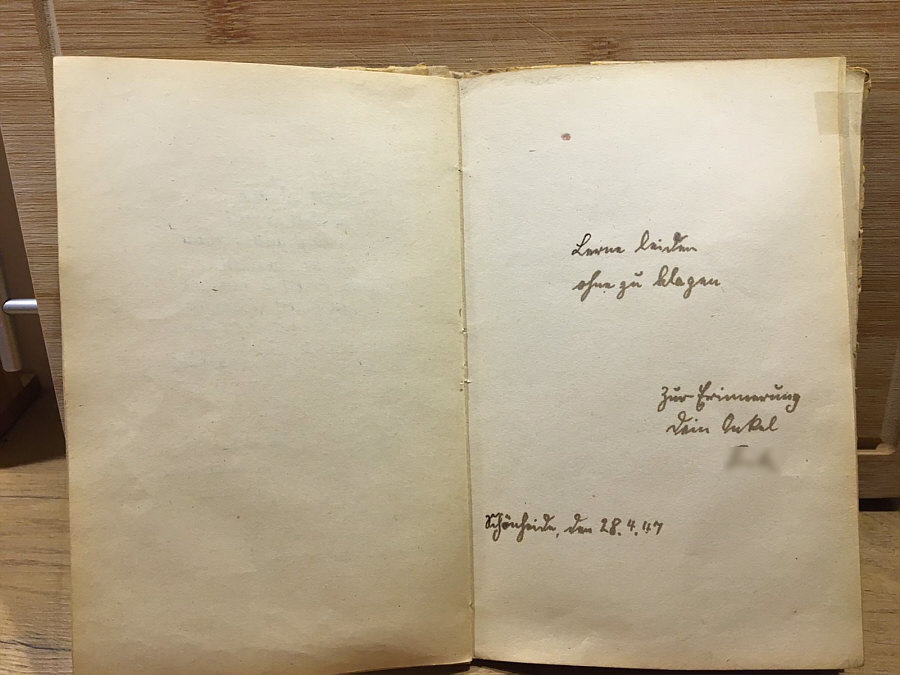 Lerne leiden
ohne zu klagen
Zur Erinnerung
Dein Onkel
Schönheide, den 28.4.47